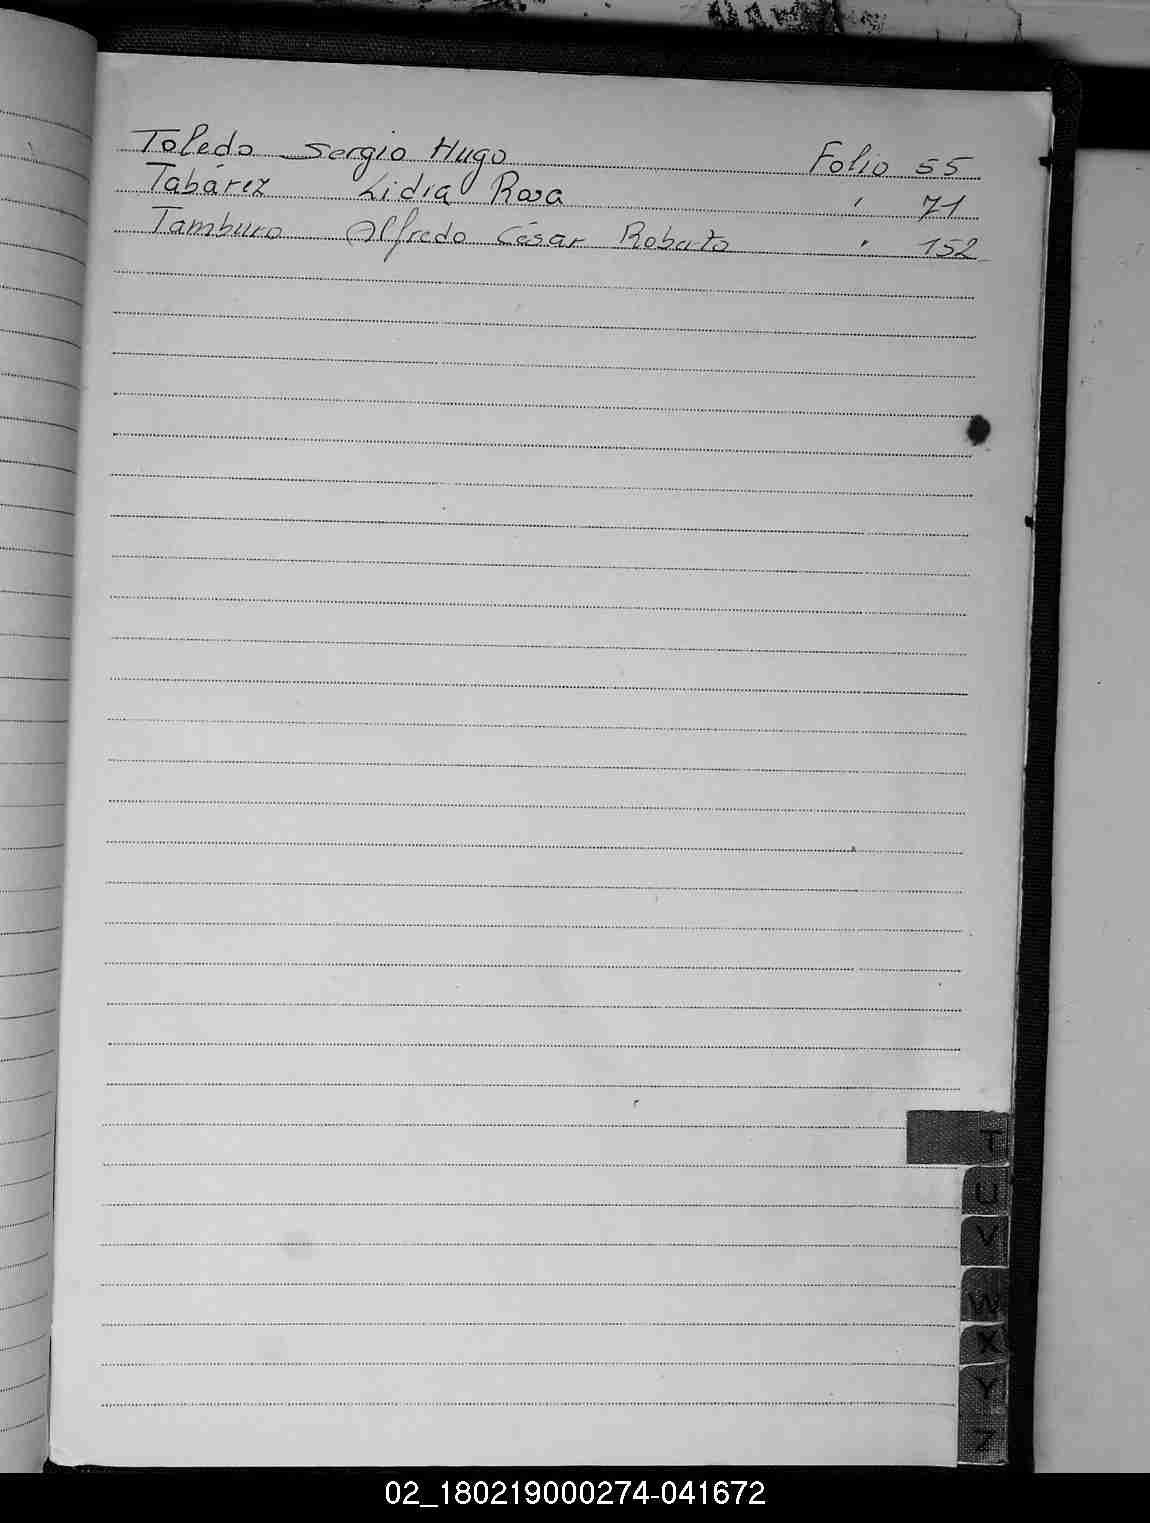 Toledo Sergio Hugo Folio 55
Tabárez Lidia Rosa " 71
Tamburo Alfredo César Roberto " 152
T
U
V
W
X
Y
Z
02_180219000274-041672